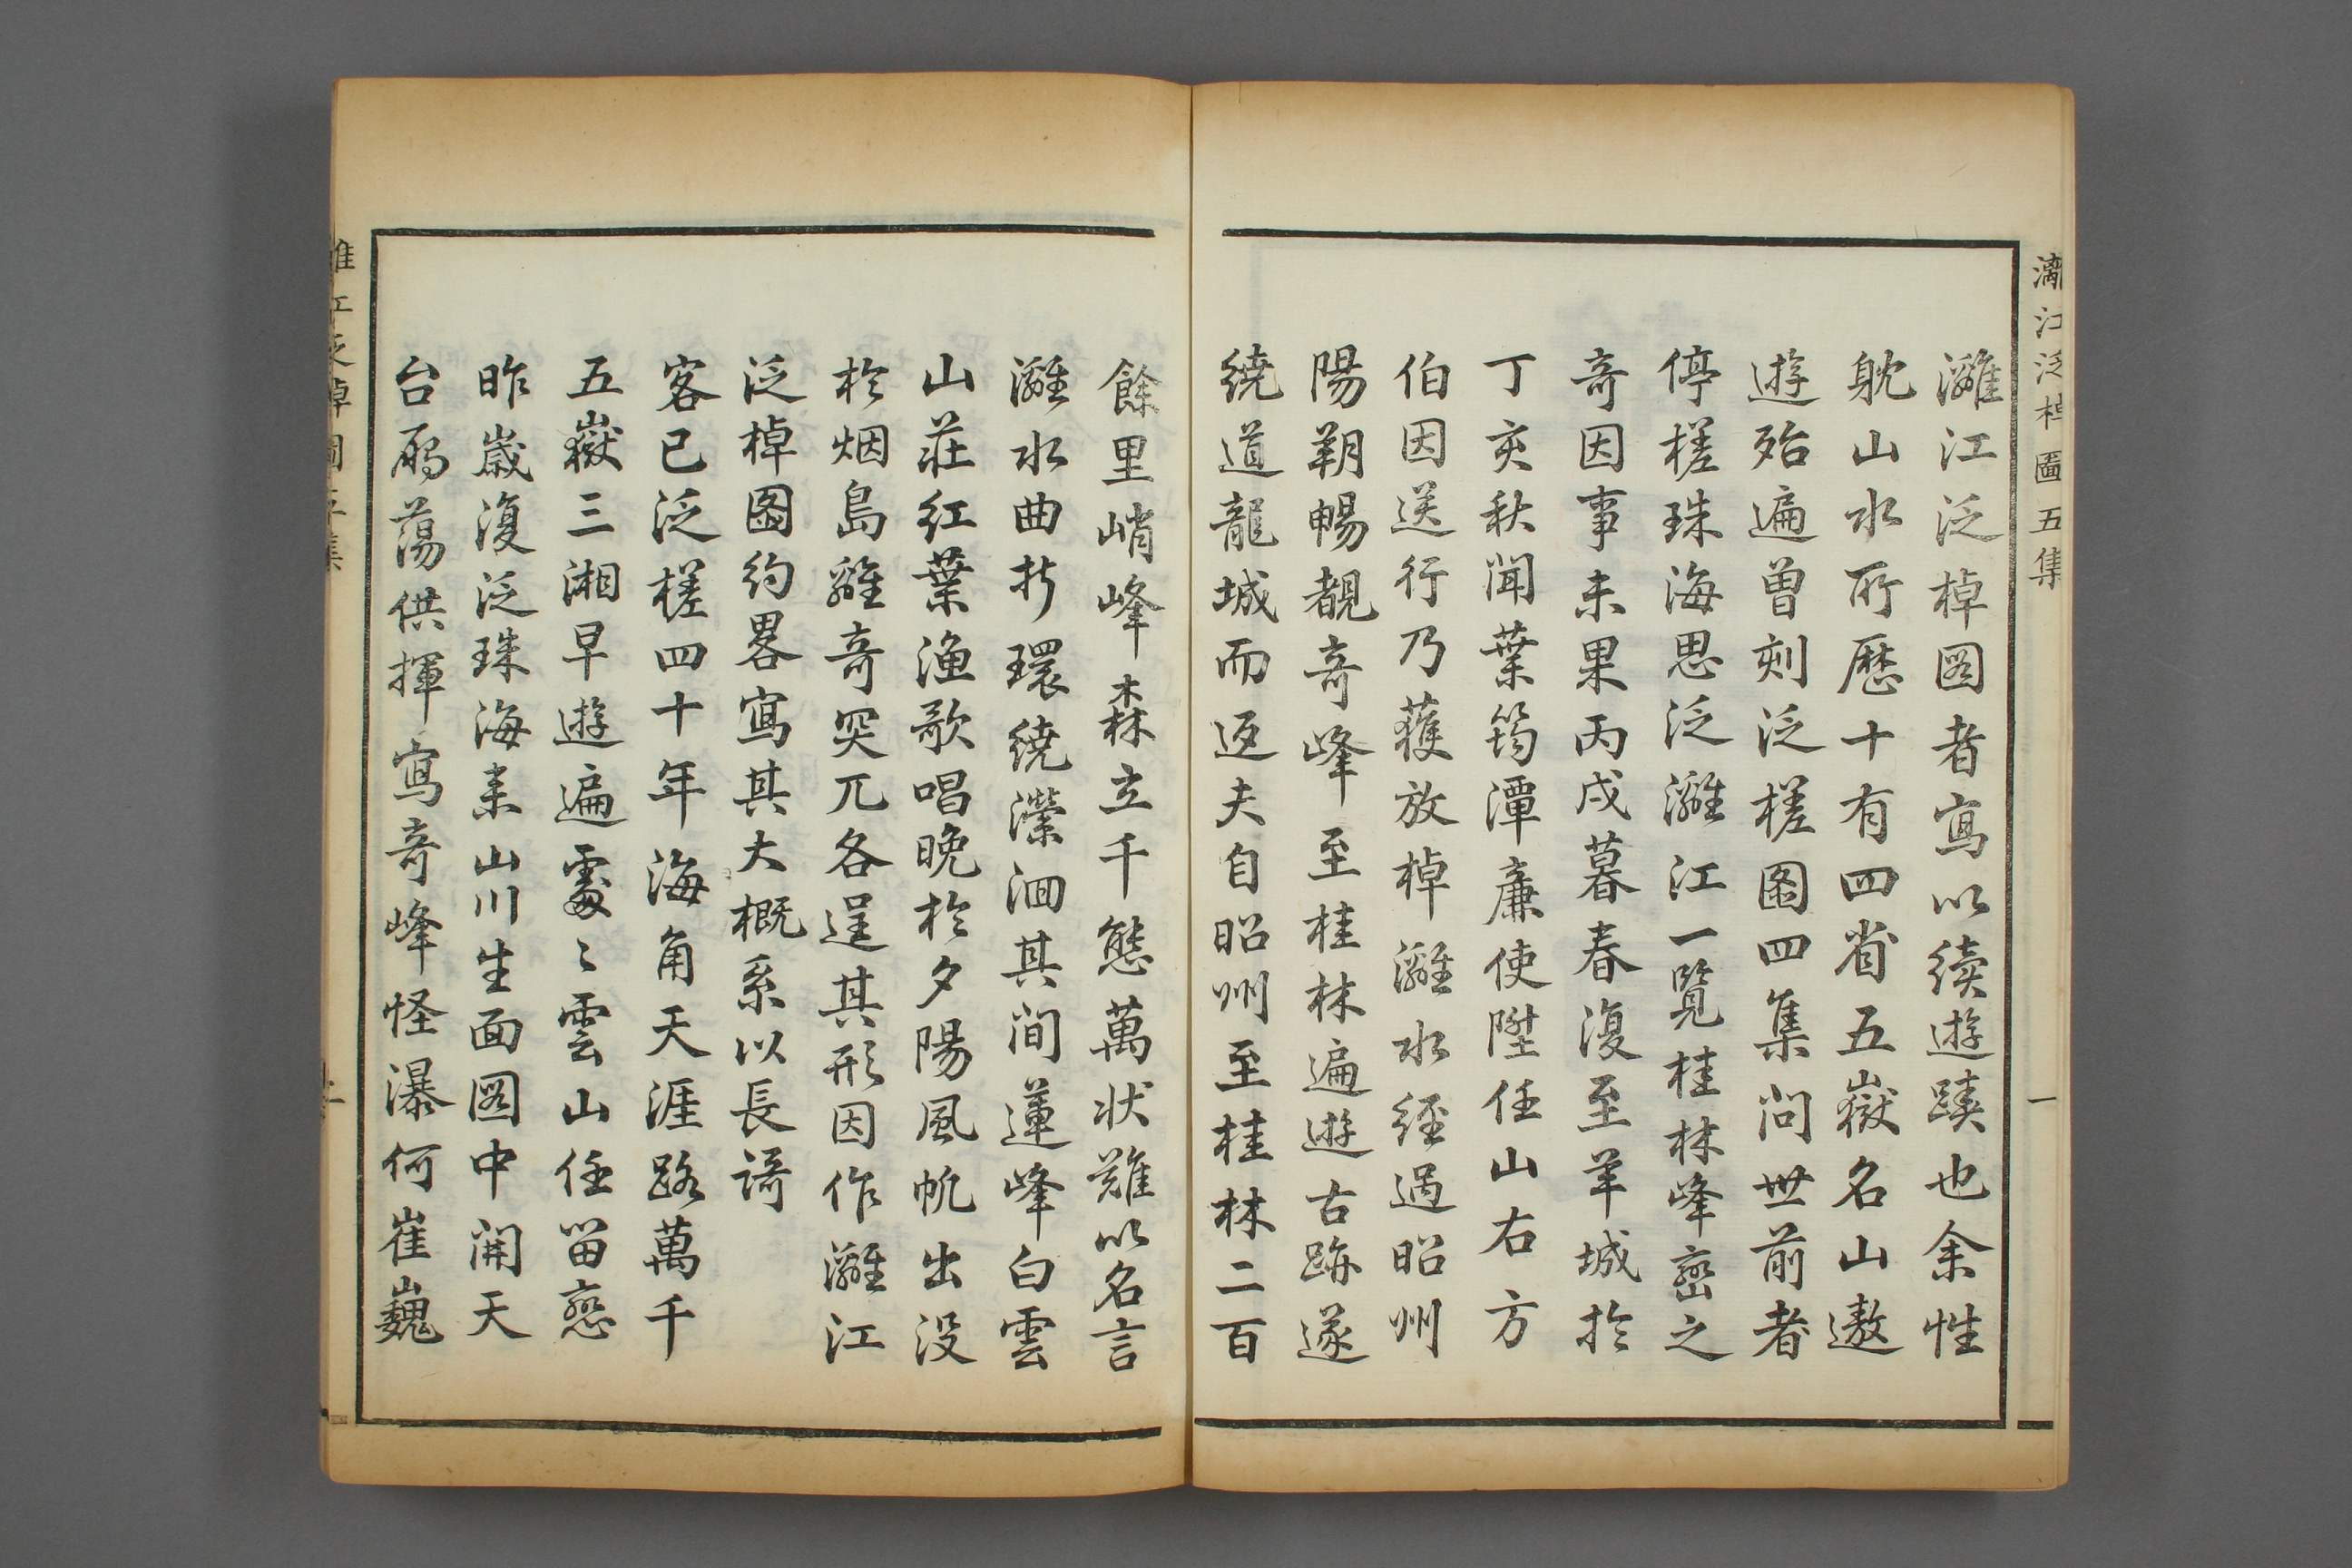 漓江泛棹圖五集
一
灕江泛棹图者寫以續遊蹟也余性
躭山水所歷十有四省五嶽名山遨
遊殆遍曾刻泛槎圖四集问世前者
停槎珠海思泛灕江一覽桂林峰巒之
奇因事未果丙戌暮春復至羊城於
丁亥秋闻葉筠潭廉使陞任山右方
伯因送行乃獲放棹灕水經過昭州
陽朔暢覩奇峰至桂林遍遊古跡遂
繞道龍城而返夫自昭州至桂林二百
餘里峭峰森立千態萬状難以名言
灕水曲折環繞瀠洄其间蓮峰白雲
山莊紅葉漁歌唱晚於夕陽風帆出没
於烟島離奇突兀各逞其形因作灕江
泛棹圖約畧寫其大概系以長謌
客已泛槎四十年海角天涯路萬千
五嶽三湘早遊遍處〻雲山任留戀
昨歲復泛珠海来山川生面图中開天
台鴈蕩供揮寫奇峰怪瀑何崔巍
江泛棹圖五集
二